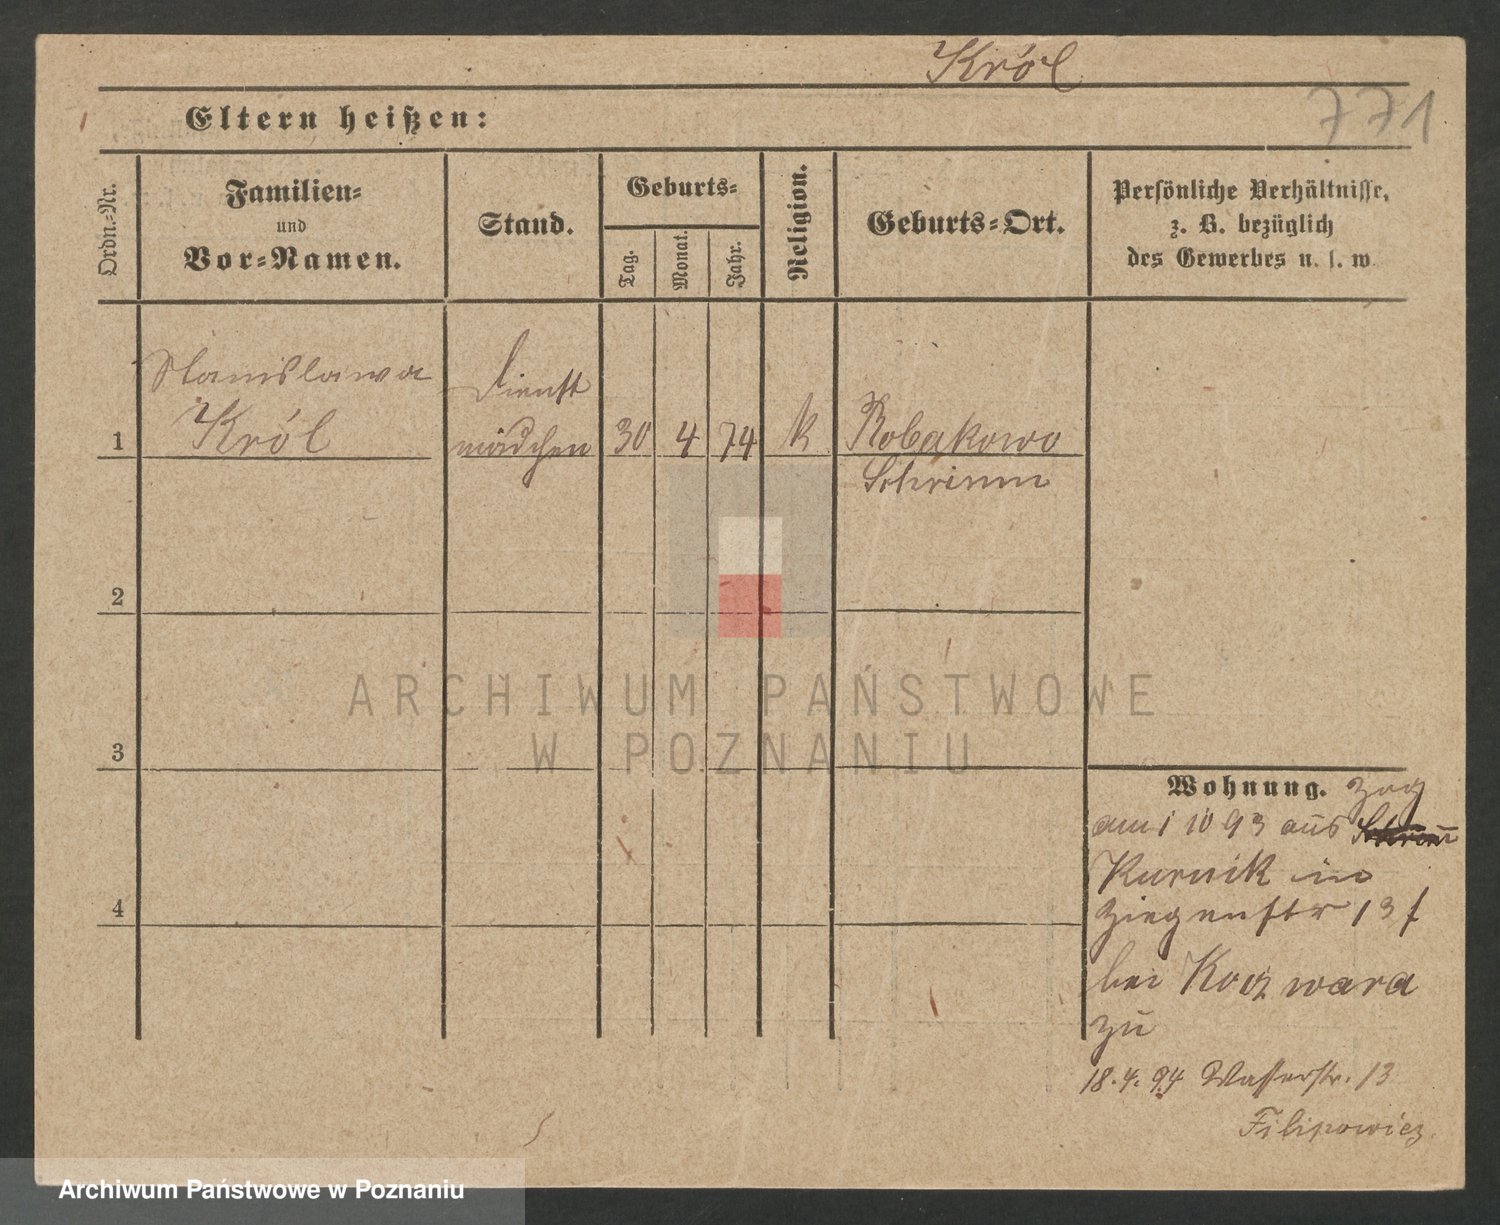 Król
771
Eltern heißen:
Ordn.-Nr.
Familien-
und
Vor-Namen.
Stand.
Geburts-
Tag.
Monat.
Jahr.
Religion.
Geburts-Ort.
Persönliche Verhältnisse,
z. B. bezüglich
des Gewerbes u. s. w.
Stanislawa
Król
Dienst
mädchen
1
30
4
74
k
Robakowo
Schrimm
2
3
4
ARCHIWUM PAŃSTWOWE
W POZNANIU
Wohnung. zog
am 1 10 93 aus
Kurnik in
Ziegenstr 13
bei
zu
18.4.94 Wasserstr. 13
Filipowicz.
Archiwum Państwowe w Poznaniu